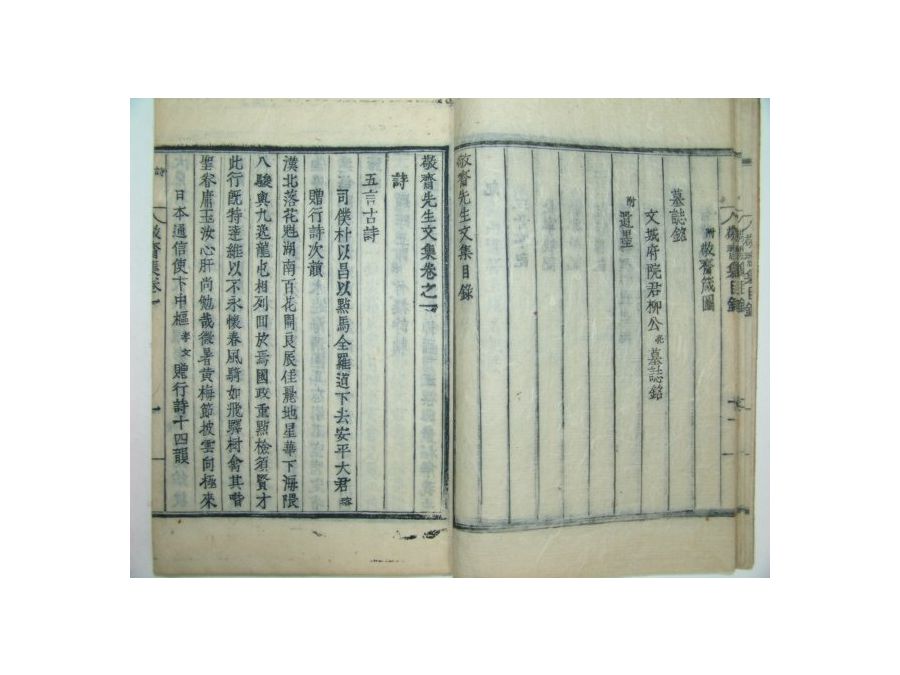 附敬齋箴圖
墓誌銘
文城府院君柳公亮墓誌銘
附遯墨
敬齋先生文集目錄
敬齋先生文集卷之一
詩
五言古詩
司僕朴以昌以點馬全羅道下去安平大君瑢
贈行詩次韻
漢北落花魁湖南百花開良辰佳麗地星華下海隈
八駿與九逸龍也相列回於焉國政重點檢須賢才
此行旣特達維以不永懷春風騎如飛驛樹禽其喈
聖眷庸玉汝心肝尚勉哉微暑黃梅節披雲向極來
日本通信使卞中樞孝文贈行詩十四韻
詩
敬齋集卷一